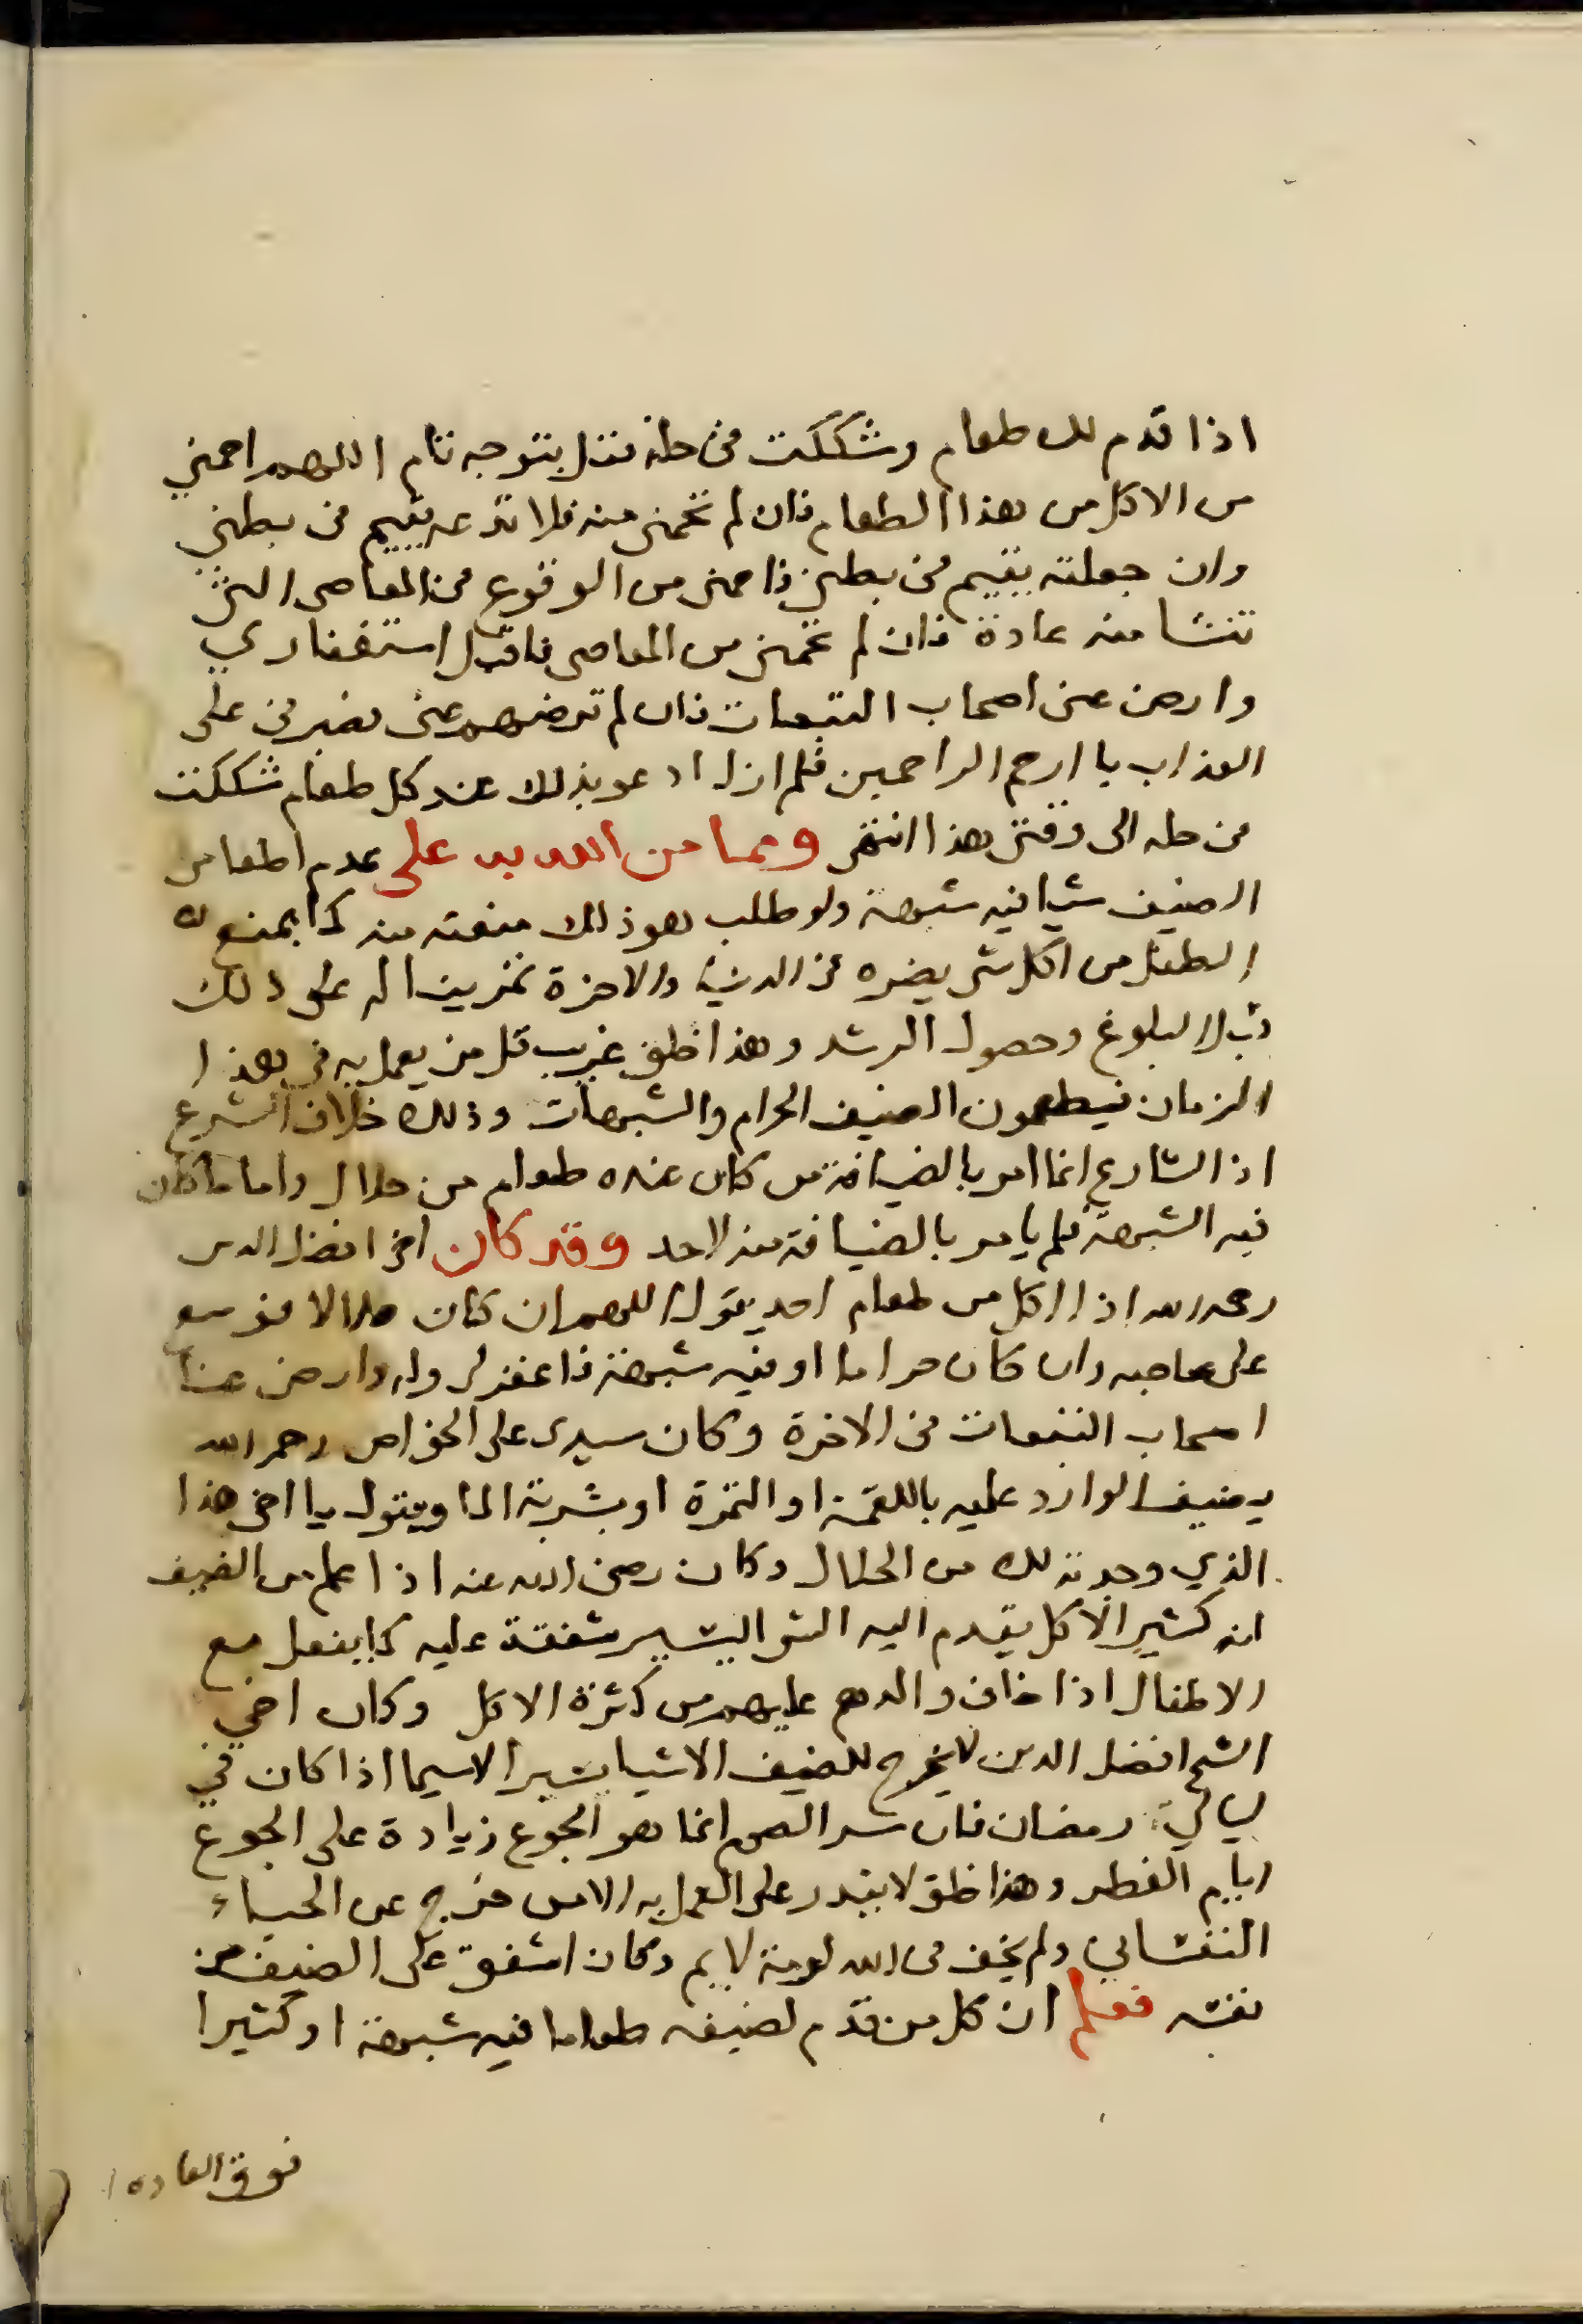 اذا قدم لك طعام وشككت في حله فقل بتوجه تام اللهم احمني
من الاكل من هذا الطعام فان لم تحمني منه فلا تدعه يقيم في بطني
وان جعلته يقيم في بطني فاحمني من الوقوع في المعاصي التي
تنشا منه عادة فان لم تحمني من المعاصي فاقبل استغفاري
وارض عني اصحاب التبعات فان لم ترضهم عني فصبرني على
العذاب يا ارحم الراحمين فلم ازل ادعو بذلك عند كل طعام شككت
في حله الى وقتي هذا انتهى ومما من الله به على عدم اطعامي
الضيف شيا فيه شبهة ولو طلب هو ذلك منعته منه كما يمنع
الطفل من اكل شي يضره في الدنيا والاخرة تمرينا له على ذلك
قبل البلوغ وحصول الرشد وهذا خلق غريب قل من يعمل به في هذا
الزمان فيطعمون الضيف الحرام والشبهات وذلك خلاف الشرع
اذ الشارع انما امر بالضيافة من كان عنده طعام من حلال واما ما كان
فيه الشبهة فلم يامر بالضيافة منه لاحد وقد كان اخي افضل الدين
رحمه الله اذا اكل من طعام احد يقول اللهم ان كان حلالا فوسع
على صاحبه وان كان حراما او فيه شبهة فاغفر لي وله وارض عنا
اصحاب التبعات في الاخرة وكان سيدي على الخواص رحمه الله
يضيف الوارد عليه باللقمة او التمرة او بشربة الما ويقول يا اخي هذا
الذي وجدته لك من الحلال وكان رضي الله عنه اذا علم من الضيف
انه كثير الاكل يقدم اليه الشي اليسير شفقة عليه كما يفعل مع
الاطفال اذا خاف والدهم عليهم من كثرة الاكل وكان اخي
الشيخ افضل الدين لا يخرج للضيف الا شيا يسيرا لاسيما اذا كان في
ليالي رمضان فان سر الصوم انما هو الجوع زيادة على الجوع
ايام الفطر وهذا خلق لا يقدر على العمل به الا من خرج عن الحياء
النفساني ولم يخف في الله لومة لايم وكان اشفق على الضيف من
نفسه فعلم ان كل من قدم لضيفه طعاما فيه شبهة او كثيرا
فوق العادة